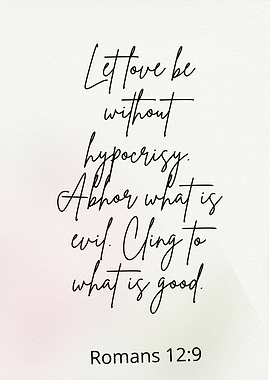 Let love be
without
hypocrisy.
Abhor what is
evil. Cling to
what is good.
Romans 12:9